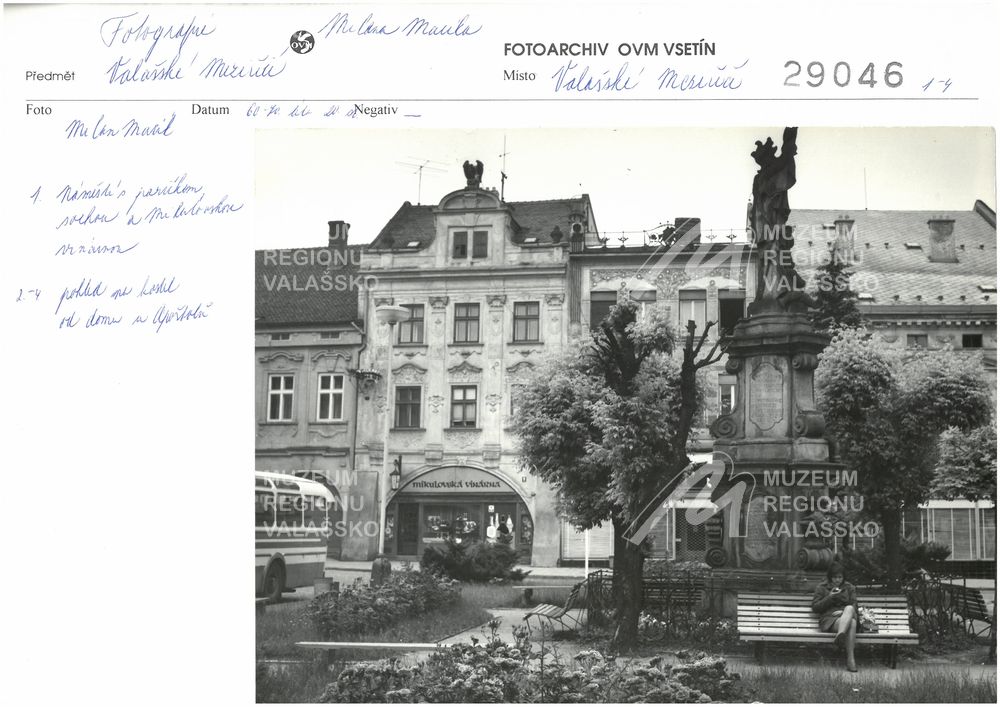 Fotografie Milana Macíka
OVM
Valašské Meziříčí
FOTOARCHIV OVM VSETÍN
Předmět
Místo Valašské Meziříčí 29046 1-4
Foto Datum 60-70. léta 20. st. Negativ —
Milan Macík
1. Náměstí s parčíkem,
sochou a Mikulovskou
vinárnou
2.-4 pohled na kostel
od domu u Apoštolů
mikulovská vinárna
MUZEUM
REGIONU
VALAŠSKO
MUZEUM
REGIONU
VALAŠSKO
MUZEUM
REGIONU
VALAŠSKO
MUZEUM
REGIONU
VALAŠSKO